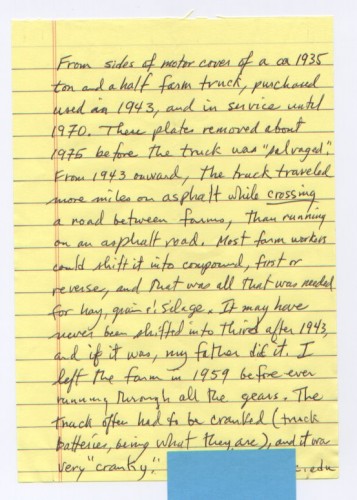 From sides of motor cover of a ca 1935
ton and a half farm truck, purchased
used in 1943, and in service until
1970. These plates removed about
1975 before the truck was "salvaged".
From 1943 onward, the truck traveled
more miles on asphalt while crossing
a road between farms, than running
on an asphalt road. Most farm workers
could shift it into compound, first or
reverse, and that was all that was needed
for hay, grain & silage. It may have
never been shifted into third after 1943,
and if it was, my father did it. I
left the farm in 1959 before ever
running through all the gears. The
truck often had to be cranked (truck
batteries, being what they are), and it was
very "cranky."
.edu